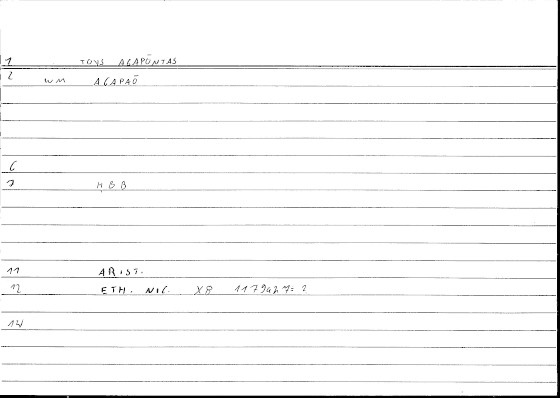 1 TOYS AGAPŌNTAS
2 WM AGAPAŌ
6
7 HBB
11 ARIST.
12 ETH. NIC. XB 1179a27=2
14